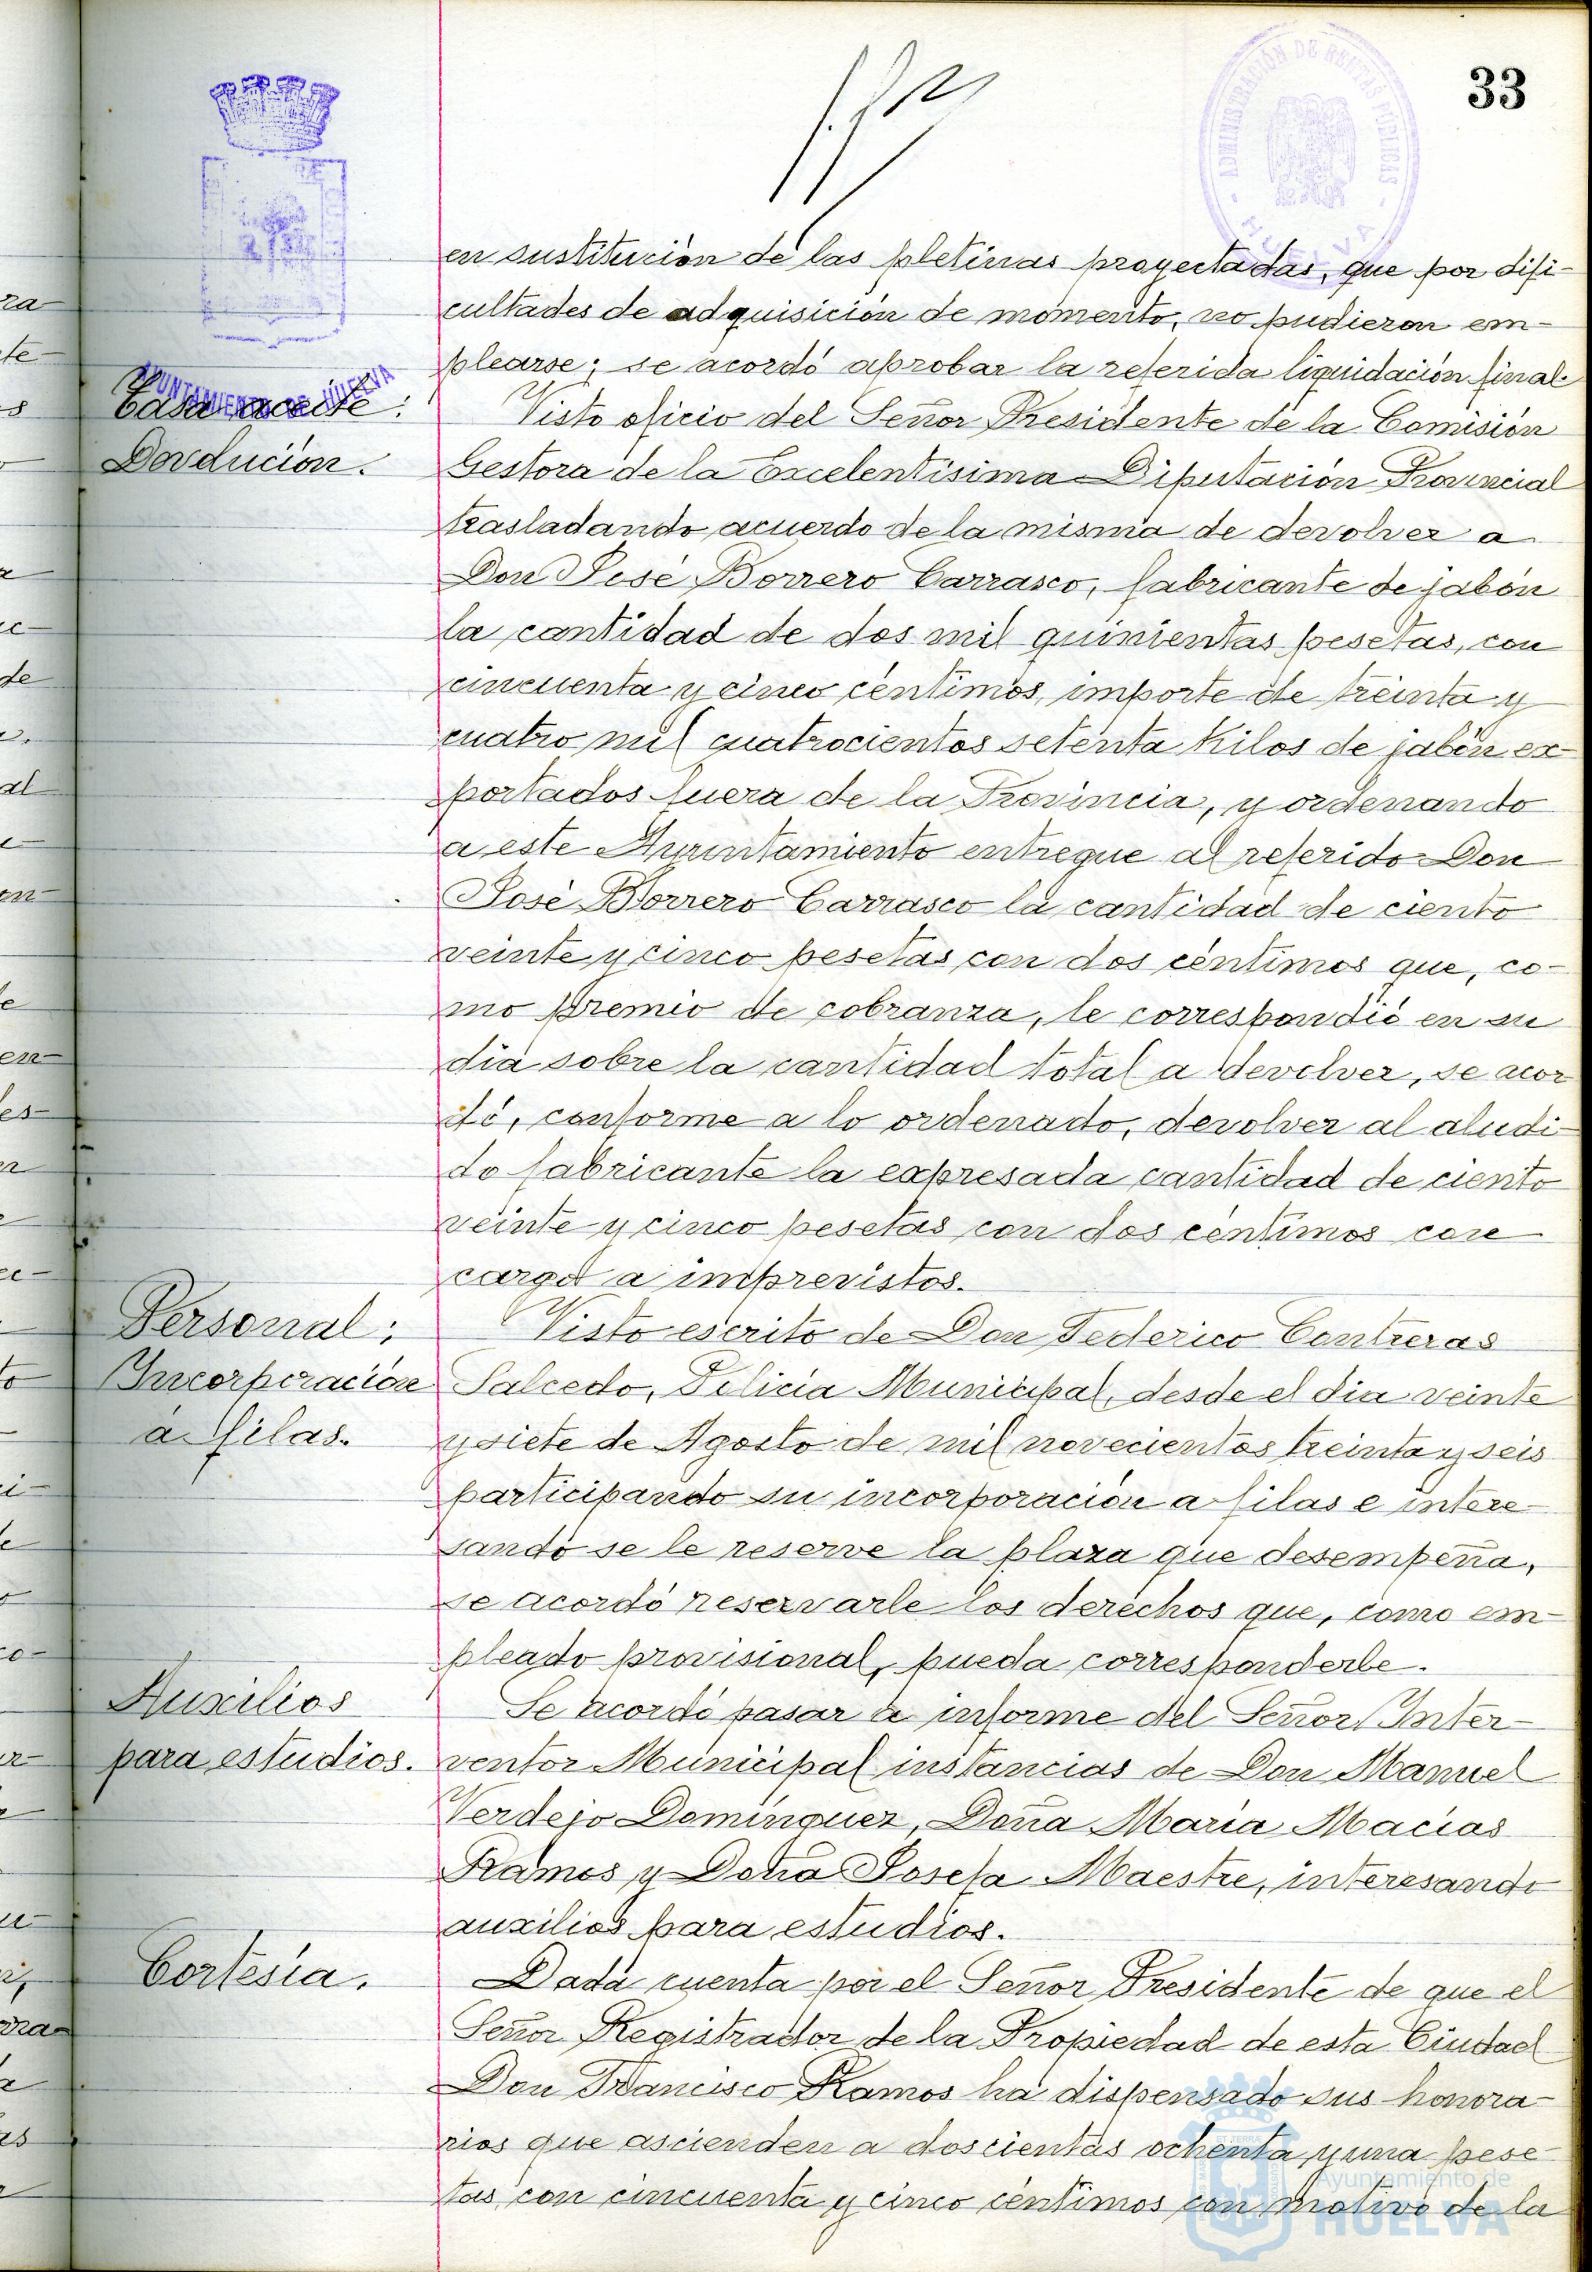 33
ADMINISTRACIÓN DE RENTAS PÚBLICAS
HUELVA
AYUNTAMIENTO DE HUELVA
en sustitución de las pletinas proyectadas, que por difi-
cultades de adquisición de momento, no pudieron em-
plearse; se acordó aprobar la referida liquidación final.
Tasa aceite:
Devolución.
Visto oficio del Señor Presidente de la Comisión
Gestora de la Excelentísima Diputación Provincial
trasladando acuerdo de la misma de devolver a
Don José Borrero Carrasco, fabricante de jabón
la cantidad de dos mil quinientas pesetas, con
cincuenta y cinco céntimos, importe de treinta y
cuatro mil cuatrocientos setenta kilos de jabón ex-
portados fuera de la Provincia, y ordenando
a este Ayuntamiento entregue al referido Don
José Borrero Carrasco la cantidad de ciento
veinte y cinco pesetas con dos céntimos que, co-
mo premio de cobranza, le correspondió en su
día sobre la cantidad total a devolver, se acor
dó, conforme a lo ordenado, devolver al aludi-
do fabricante la expresada cantidad de ciento
veinte y cinco pesetas con dos céntimos con
cargo a imprevistos.
Personal:
Incorporación
a filas.
Visto escrito de Don Federico Contreras
Salcedo, Policía Municipal, desde el dia veinte
y siete de Agosto de mil novecientos treinta y seis
participando su incorporación a filas e intere-
sando se le reserve la plaza que desempeña,
se acordó reservarle los derechos que, como em-
pleado provisional, pueda corresponderle.
Auxilios
para estudios.
Se acordó pasar a informe del Señor Inter-
ventor Municipal instancias de Don Manuel
Verdejo Domínguez, Doña María Macías
Ramos y Doña Josefa Maestre, interesando
auxilios para estudios.
Cortesía.
Dada cuenta por el Señor Presidente de que el
Señor Registrador de la Propiedad de esta Ciudad
Don Francisco Ramos ha dispensado sus honora-
rios que ascienden a doscientas ochenta y una pese-
tas con cincuenta y cinco céntimos con motivo de la
Ayuntamiento de
HUELVA